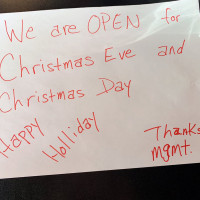 We are OPEN for
Christmas Eve and
Christmas Day
Happy
Holliday
Thanks
mgmt.